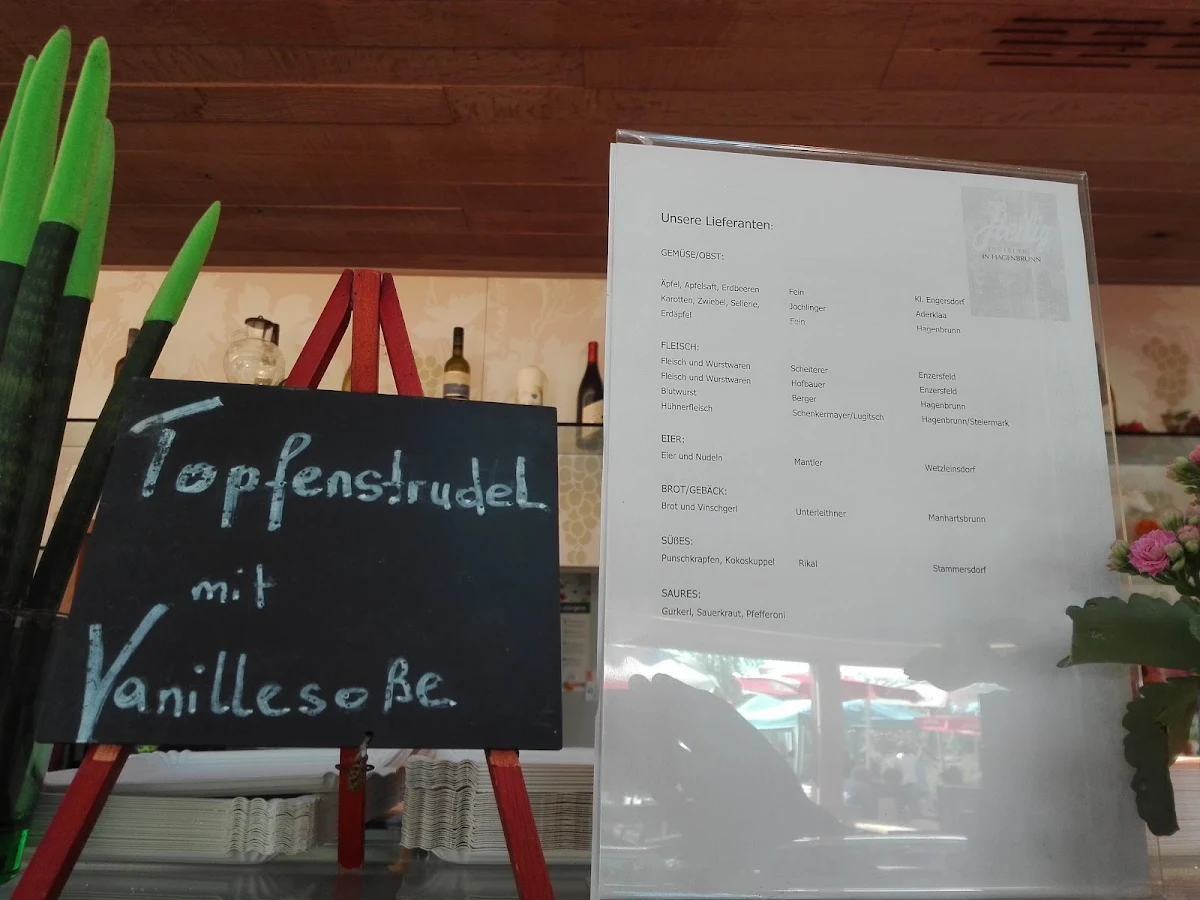 Topfenstrudel
mit
Vanillesoße
Unsere Lieferanten:
IN HAGENBRUNN
GEMÜSE/OBST:
Äpfel, Apfelsaft, Erdbeeren Fein Kl. Engersdorf
Karotten, Zwiebel, Sellerie, Jochlinger Aderklaa
Erdäpfel Fein Hagenbrunn
FLEISCH:
Fleisch und Wurstwaren Scheiterer Enzersfeld
Fleisch und Wurstwaren Hofbauer Enzersfeld
Blutwurst Berger Hagenbrunn
Hühnerfleisch Schenkermayer/Lugitsch Hagenbrunn/Steiermark
EIER:
Eier und Nudeln Mantler Wetzleinsdorf
BROT/GEBÄCK:
Brot und Vinschgerl Unterleithner Manhartsbrunn
SÜßES:
Punschkrapfen, Kokoskuppel Rikal Stammersdorf
SAURES:
Gurkerl, Sauerkraut, Pfefferoni